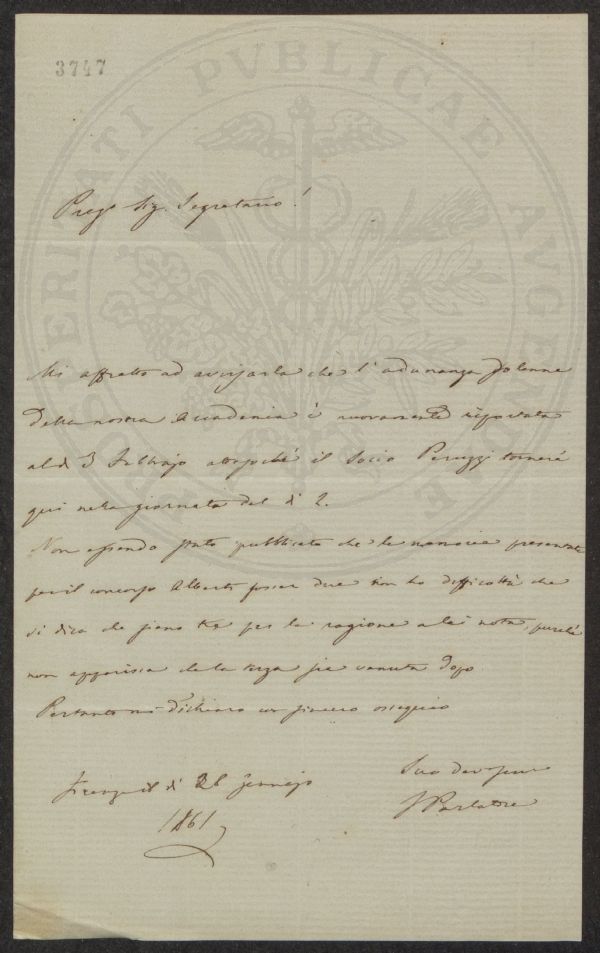 3747
PROSPERITATI PVBLICAE AVGENDAE
Preg.o Sig. Segretario!
Mi affretto ad avvisarla che l'adunanza solenne
della nostra Accademia è nuovamente
al dì 3 Febbrajo attesoché il Socio Peruzzi tornerà
qui nella giornata del dì 2.
Non essendo stato pubblicato che le memorie presentate
per il concorso Alberti fossero due non ho difficoltà che
si dica che siano tre per la ragione a lei nota, purché
non apparisca che la terza sia venuta dopo.
Pertanto mi dichiaro con sincero ossequio
Firenze il dì 26 Gennajo
1861
Suo
Parlatore